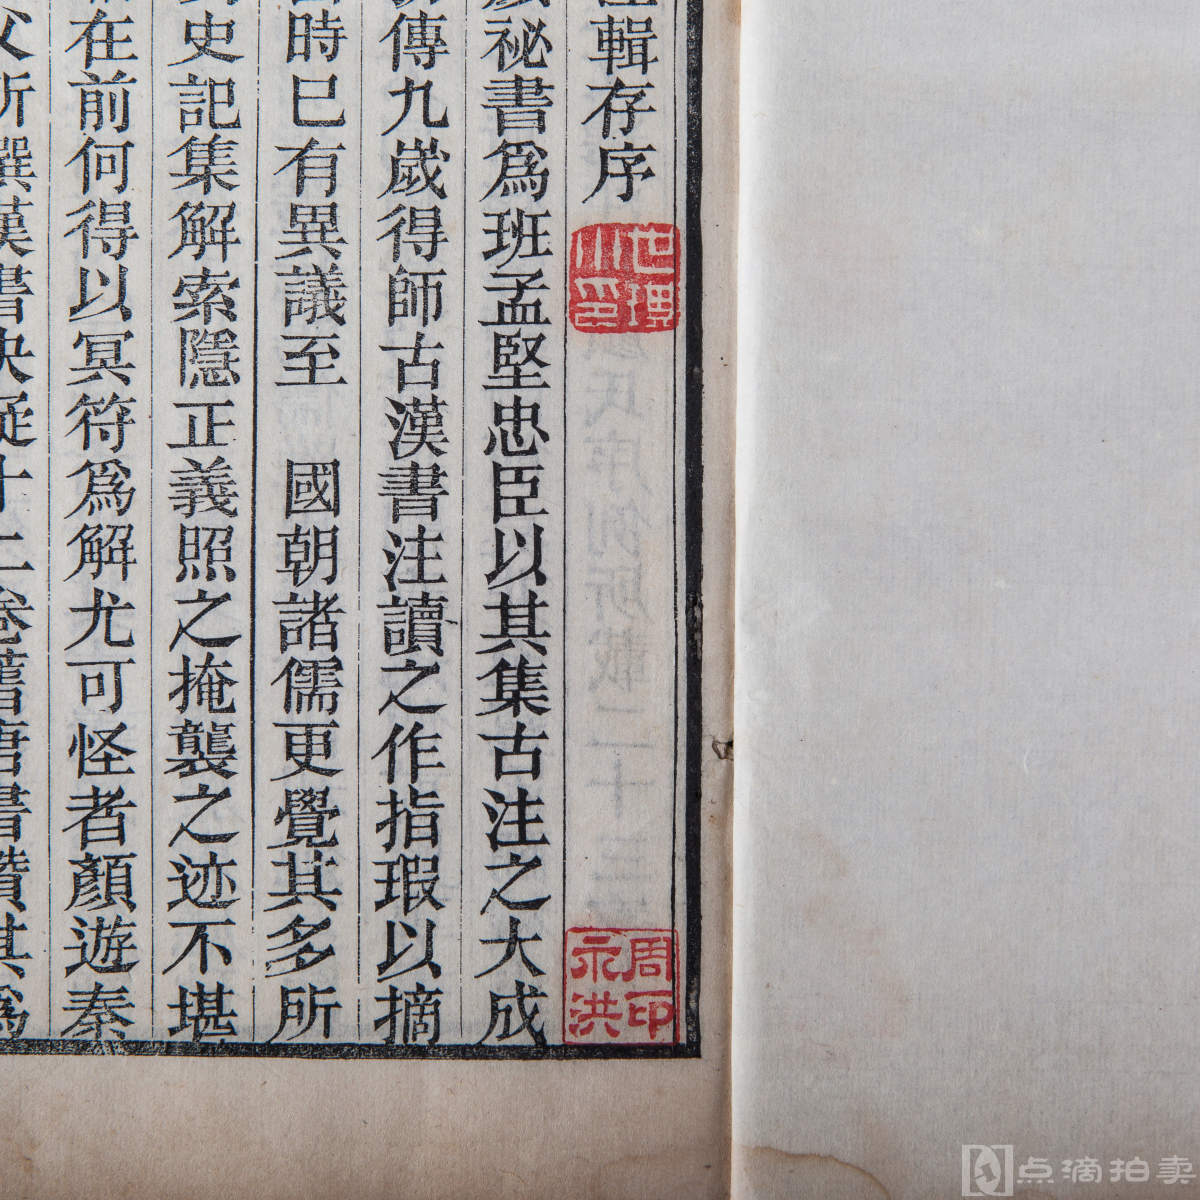 輯存序
世
小印
周印
永洪
祕書爲班孟堅忠臣以其集古注之大成
傳九歲得師古漢書注讀之作指瑕以摘
時已有異議至 國朝諸儒更覺其多所
史記集解索隱正義照之掩襲之迹不堪
在前何得以冥符爲解尤可怪者顏遊秦
父所撰漢書決疑十二卷舊唐書讚其爲
点滴拍卖